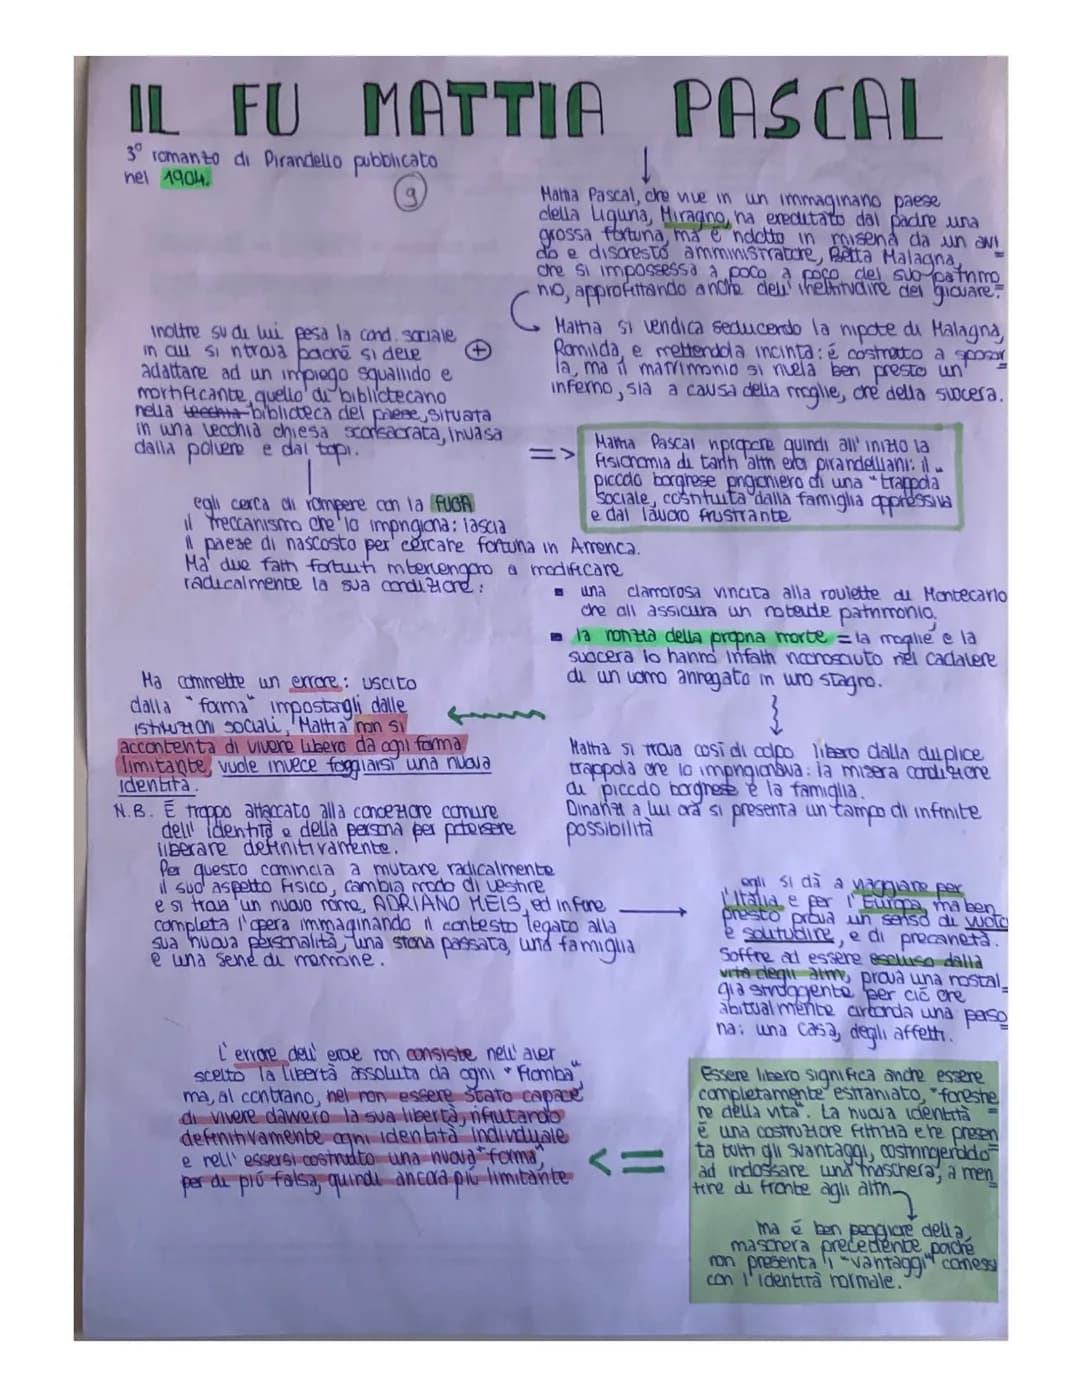 IL FU MATTIA PASCAL
3° romanzo di Pirandello pubblicato
nel 1904.
9
Mattia Pascal, che vive in un immaginario paese
della Liguria, Miragno, ha ereditato dal padre una
grossa fortuna, ma è ridotto in miseria da un avi
do e disonesto amministratore, Batta Malagna,
che si impossessa a poco a poco del suo patrimo
nio, approfittando anche dell'inettitudine del giovane.
Mattia si vendica seducendo la nipote di Malagna,
Romilda, e mettendola incinta: è costretto a sposar
la, ma il matrimonio si rivela ben presto un
inferno, sia a causa della moglie, che della suocera.
+
inoltre su di lui pesa la cond. sociale
in cui si ritrova poiché si deve
adattare ad un impiego squallido e
mortificante, quello di bibliotecario
nella vecchia biblioteca del paese, situata
in una vecchia chiesa sconsacrata, invasa
dalla polvere e dai topi.
=> Mattia Pascal ripropone quindi all'inizio la
fisionomia di tanti altri eroi pirandelliani: il
piccolo borghese prigioniero di una "trappola
sociale, costituita dalla famiglia oppressiva
e dal lavoro frustrante
egli cerca di rompere con la FUGA
il meccanismo che lo imprigiona: lascia
il paese di nascosto per cercare fortuna in America.
Ma due fatti fortuiti intervengono a modificare
radicalmente la sua condizione:
▪ una clamorosa vincita alla roulette di Montecarlo
che gli assicura un notevole patrimonio.
▪ la notizia della propria morte = la moglie e la
suocera lo hanno infatti riconosciuto nel cadavere
di un uomo annegato in uno stagno.
Mattia si trova così di colpo libero dalla duplice
trappola che lo imprigionava: la misera condizione
di piccolo borghese e la famiglia.
Dinanzi a lui ora si presenta un tampo di infinite
possibilità
Ma commette un errore: uscito
dalla "forma" impostagli dalle
istituzioni sociali, Mattia non si
accontenta di vivere libero da ogni forma
limitante, vuole invece foggiarsi una nuova
identità.
N.B. È troppo attaccato alla concezione comune
dell'identità e della persona per potersene
liberare definitivamente.
Per questo comincia a mutare radicalmente
il suo aspetto fisico, cambia modo di vestire
e si trova un nuovo nome, ADRIANO MEIS, ed infine
completa l'opera immaginando il contesto legato alla
sua nuova personalità, una storia passata, una famiglia
e una serie di memorie.
egli si dà a viaggiare per
l'Italia e per l'Europa, ma ben
presto prova un senso di vuoto
e solitudine, e di precarietà.
Soffre ad essere escluso dalla
vita degli altri, prova una nostal
gia struggente per ciò che
abitualmente circonda una perso
na: una casa, degli affetti.
Essere libero significa anche essere
completamente estraniato, "forestie
re della vita". La nuova identità
è una costruzione fittizia che presen
ta tutti gli svantaggi, costringendolo
ad indossare una "maschera", a men
tire di fronte agli altri.
ma è ben peggiore della
maschera precedente poiché
non presenta i "vantaggi" connessi
con l'identità normale.
<=
L'errore dell'eroe non consiste nell'aver
scelto la libertà assoluta da ogni "Fiomba"
ma, al contrario, nel non essere stato capace
di vivere davvero la sua libertà, rifiutando
definitivamente ogni identità individuale
e nell'essersi costruito una nuova "forma",
per di più falsa, quindi ancora più limitante